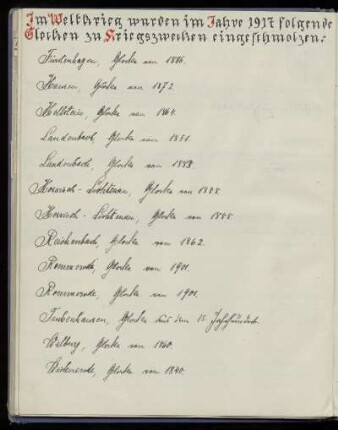 Im Weltkrieg wurden im Jahre 1917 folgende
Glocken zu Kriegszwecken eingeschmolzen:
Fürstenhagen, Glocke von 1886.
Harmuthsachsen, Glocke von 1872.
Hollstein, Glocke von 1864.
Laudenbach, Glocke von 1851.
Laudenbach, Glocke von
Hessisch-Lichtenau, Glocke von
Hessisch-Lichtenau, Glocke von
Reichenbach, Glocke von 1862.
Rommerode, Glocke von 1901.
Rommerode, Glocke von 1901.
Glocke aus dem 15. Jahrhundert.
Walburg, Glocke von 1860.
Wickenrode, Glocke von 1840.